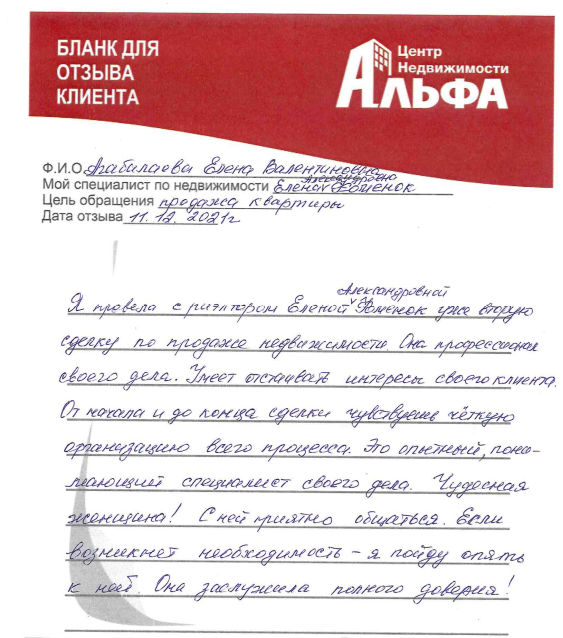 БЛАНК ДЛЯ
ОТЗЫВА
КЛИЕНТА
Центр
Недвижимости
АЛЬФА
Ф.И.О. Агабалаева Елена Валентиновна
Александровна
Мой специалист по недвижимости Елена Фоменок
Цель обращения продажа квартиры
Дата отзыва 11.12.2021г
Александровной
Я провела с риэлтором Еленой Фоменок уже вторую
сделку по продаже недвижимости. Она профессионал
своего дела. Умеет отстаивать интересы своего клиента.
От начала и до конца сделки чувствуешь чёткую
организацию всего процесса. Это опытный, пони-
мающий специалист своего дела. Чудесная
женщина! С ней приятно общаться. Если
возникнет необходимость – я пойду опять
к ней. Она заслужила полного доверия!